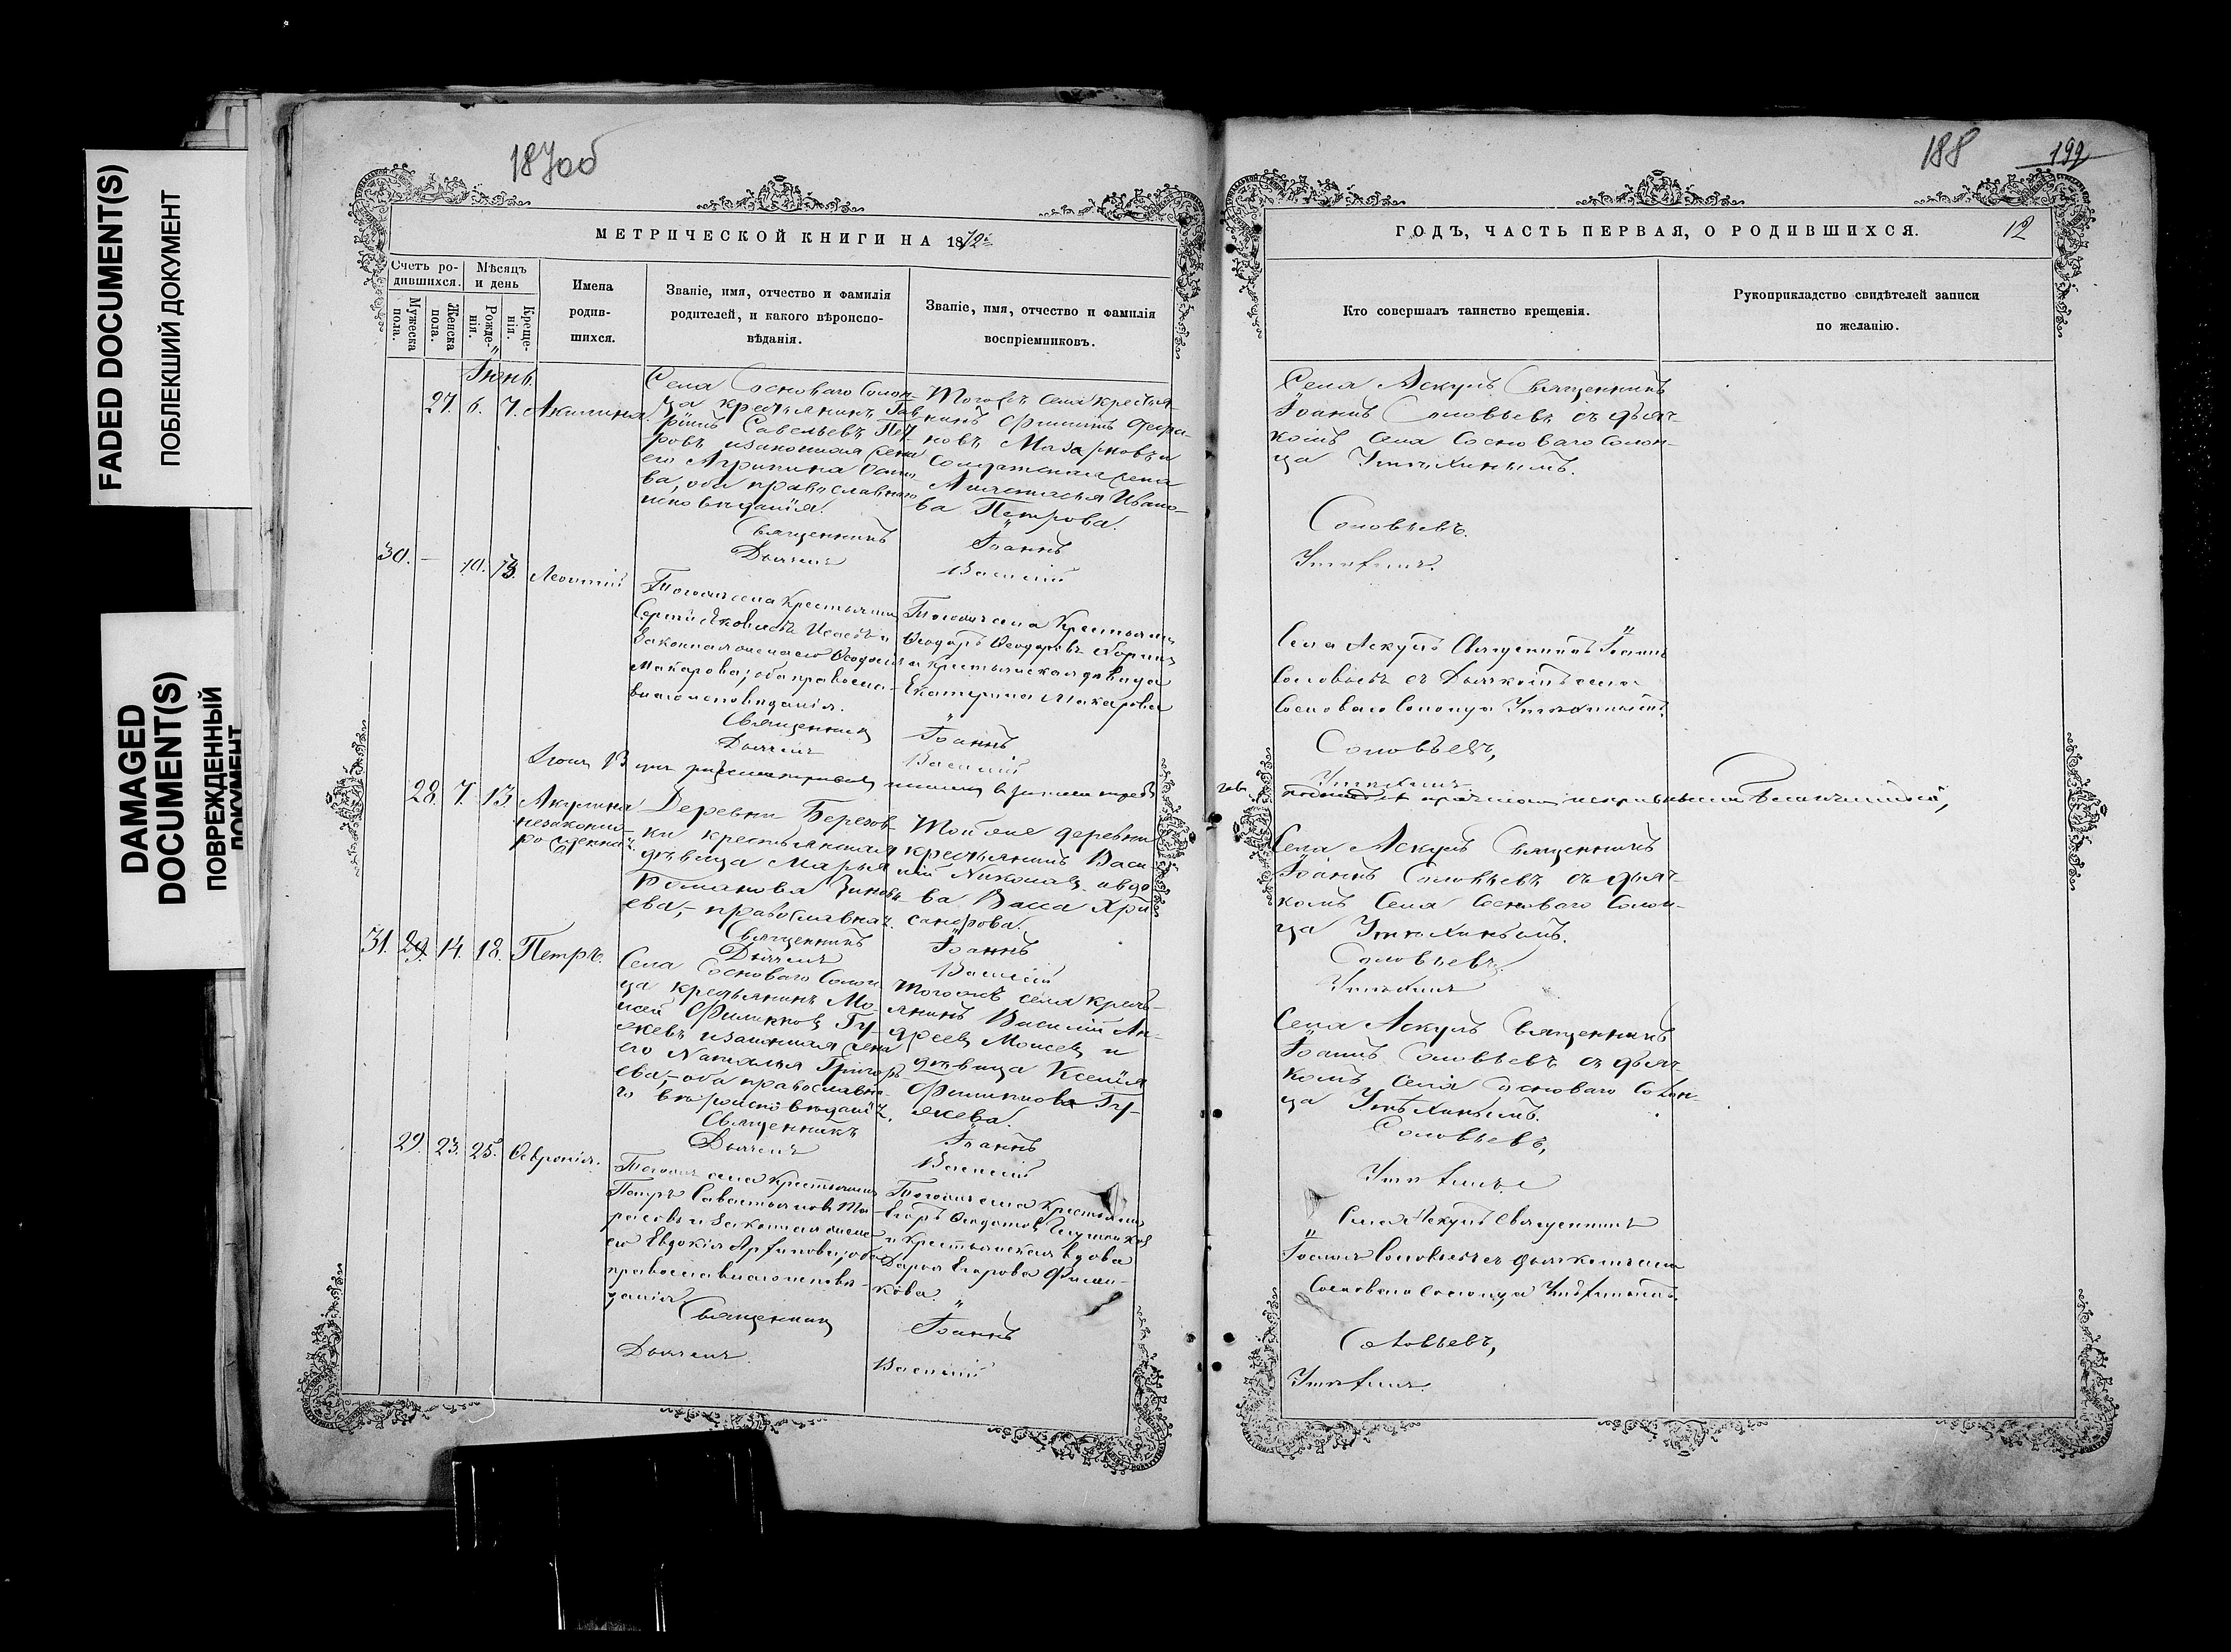 FADED DOCUMENT(S)
ПОБЛЕКШИЙ ДОКУМЕНТ
DAMAGED
DOCUMENT(S)
ПОВРЕЖДЕННЫЙ
ДОКУМЕНТ
187об
МЕТРИЧЕСКОЙ КНИГИ НА 1872
Счетъ ро-
дившихся.
Мѣсяцъ
и день
Мужеска
пола.
Женска
пола.
Рожде-
нія.
Креще-
нія.
Имена
родив-
шихся.
Званіе, имя, отчество и фамилія
родителей, и какого вѣроиспо-
вѣданія.
Званіе, имя, отчество и фамилія
воспріемниковъ.
Іюнь.
27. 6. 7. Акилина.
Села Сосноваго Солон-
ца крестьянинъ Гав-
ріилъ Савельевъ Пет-
ровъ и законная жена
его Агрипина
ва, оба православнаго
исповѣданія.
Тогожъ села крестья-
нинъ Филиппъ
новъ и
Солдатская жена
Анастасья Ивано-
ва Петрова.
Священникъ Іоаннъ
Дьячекъ Василій
30. – 10. 13. Леонтій
Тогоже села Крестьянинъ
Сергій Яковлевъ Исаевъ и
Законная жена его Ѳеодосія
Макарова; оба православ-
наго исповѣданія.
Тогоже села Крестьянинъ
Ѳеодоръ Ѳеодоровъ
и крестьянская дѣвица
Екатерина Макарова
Священникъ Іоаннъ
Дьячекъ Василій
28. 7. 13. Акулина
незаконно-
рожденная.
Деревни Березов-
ки крестьянская
дѣвица Марья
Романова Зиновь-
ева, – православная.
Той же деревни
крестьянинъ Васи-
лій Николаев. вдо
ва Васса Хри
санфова.
Священникъ Іоаннъ
Дьячекъ Василій
31. 29. 14. 18. Петръ.
Села Сосноваго Солон
ца крестьянинъ Мо-
исей Филипповъ Гу-
жевъ и законная жена
его Наталья Григорь-
ева, – оба православна-
го вѣроисповѣданія.
Тогожъ села кресть-
янинъ Василій Ан-
дреевъ Моисеевъ и
дѣвица Ксенія
Филиппова Гу-
жева.
Священникъ Іоаннъ
Дьячекъ Василій
29. 23. 25. Ѳевронія.
Тогоже села Крестьянинъ
Петръ Савастьяновъ Та-
расовъ и Законная жена
его Евдокія Архипова; оба
православнаго исповѣ-
данія
Тогоже села Крестьянинъ
Егоръ Ѳедотовъ
и Крестьянская вдова
Дарья Егорова Филип-
кова.
Священникъ Іоаннъ
Дьячекъ Василій
188 192
ГОДЪ, ЧАСТЬ ПЕРВАЯ, О РОДИВШИХСЯ. 12
Кто совершалъ таинство крещенія.
Рукоприкладство свидѣтелей записи
по желанію.
Села Аскулъ Священникъ
Іоаннъ Соловьевъ съ дьяч-
комъ Села Сосноваго Солон-
ца Утѣхинымъ.
Соловьевъ.
Утѣхинъ.
Села Аскулъ Священникъ Іоаннъ
Соловьевъ съ Дьячкомъ села
Сосноваго Солонца Утѣхинымъ.
Соловьевъ,
Утѣхинъ
Села Аскулъ Священникъ
Іоаннъ Соловьевъ съ дьяч-
комъ Села Сосноваго Солон-
ца Утѣхинымъ.
Соловьевъ.
Утѣхинъ
Села Аскулъ Священникъ
Іоаннъ Соловьевъ съ дьяч-
комъ Села Сосноваго Солон-
ца Утѣхинымъ.
Соловьевъ,
Утѣхинъ.
Села Аскулъ Священникъ
Іоаннъ Соловьевъ съ дьячкомъ села
Сосноваго Солонца Утѣхинымъ.
Соловьевъ,
Утѣхинъ.